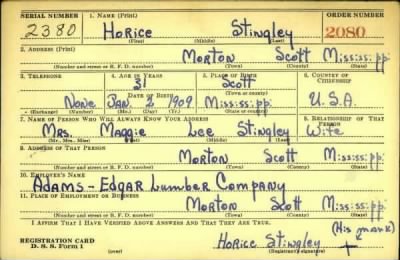 SERIAL NUMBER 1. NAME (Print) ORDER NUMBER
2380 HORICE Stingley 2080
(First) (Middle) (Last)
2. ADDRESS (Print)
MORTON Scott Mississ:pp:
(Number and street or R. F. D. number) (Town) (County) (State)
3. TELEPHONE 4. AGE IN YEARS 5. PLACE OF BIRTH 6. COUNTRY OF CITIZENSHIP
31 Scott
DATE OF BIRTH (Town or county)
None JAN. 2 1909 Mississ:pp: U.S.A.
(Exchange) (Number) (Mo.) (Day) (Yr.) (State or country)
7. NAME OF PERSON WHO WILL ALWAYS KNOW YOUR ADDRESS 8. RELATIONSHIP OF THAT PERSON
Mrs. Maggie Lee Stingley Wife
(Mr., Mrs., Miss) (First) (Middle) (Last)
9. ADDRESS OF THAT PERSON
MORTON Scott Mississ:pp:
(Number and street or R. F. D. number) (Town) (County) (State)
10. EMPLOYER'S NAME
ADAMS-Edgar Lumber Company
11. PLACE OF EMPLOYMENT OR BUSINESS
MORTON Scott Mississ:pp:
(Number and street or R. F. D. number) (Town) (County) (State)
I AFFIRM THAT I HAVE VERIFIED ABOVE ANSWERS AND THAT THEY ARE TRUE.
(His mark)
REGISTRATION CARD HORICE Stingley +
D. S. S. Form 1 (Registrant's signature)